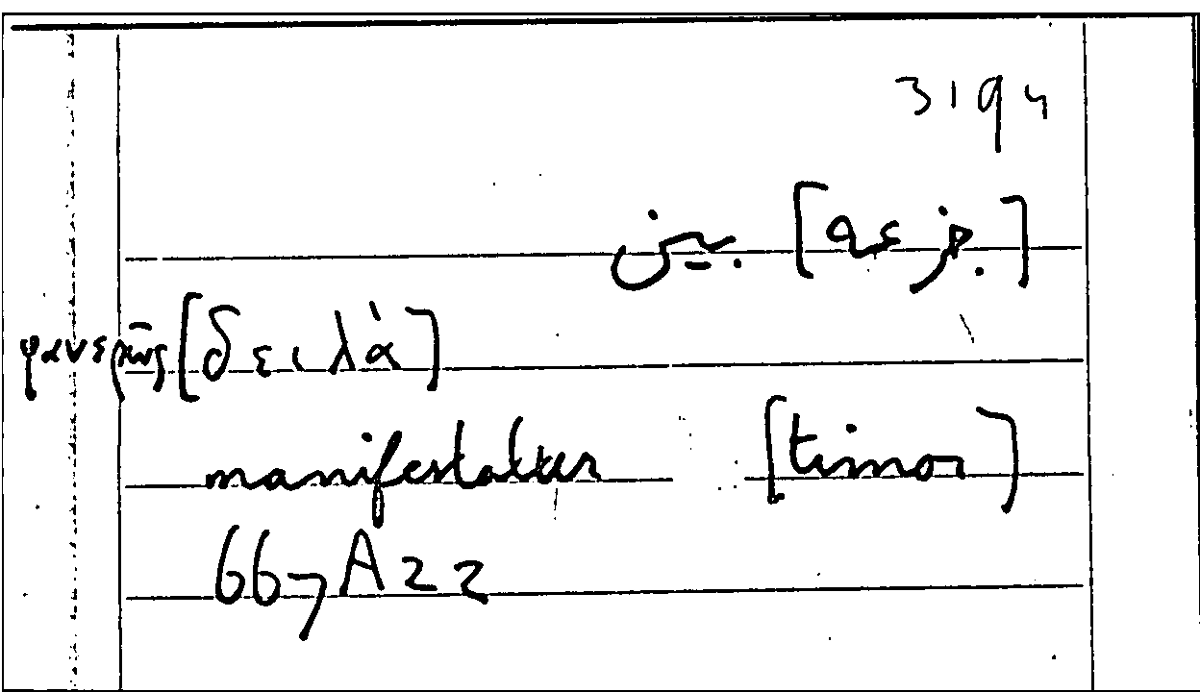 3194
[جزعه] بين
φανερῶς [δειλά]
manifestatur [timor]
667A22